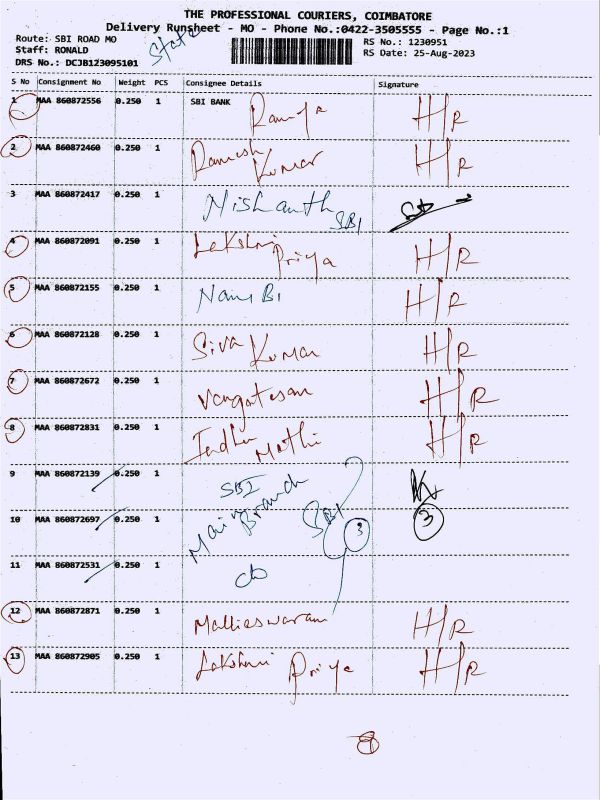 THE PROFESSIONAL COURIERS, COIMBATORE
Delivery Runsheet - MO - Phone No.:0422-3505555 - Page No.:1
Route: SBI ROAD MO
State
RS No.: 1230951
Staff: RONALD
RS Date: 25-Aug-2023
DRS No.: DCJB123095101
S No Consignment No Weight PCS Consignee Details Signature
1 MAA 860872556 0.250 1 SBI BANK Ramya H/R
2 MAA 860872460 0.250 1 Ramesh Kumar H/R
3 MAA 860872417 0.250 1 Nishanth SBI
4 MAA 860872091 0.250 1 Lakshmi Priya H/R
5 MAA 860872155 0.250 1 H/R
6 MAA 860872128 0.250 1 Siva Kumar H/R
7 MAA 860872672 0.250 1 Vengatesan H/R
8 MAA 860872831 0.250 1 Indhu Mathi H/R
9 MAA 860872139 0.250 1 SBI
10 MAA 860872697 0.250 1 Main Branch SBI 3 3
11 MAA 860872531 0.250 1
12 MAA 860872871 0.250 1 Mallieswaram H/R
13 MAA 860872905 0.250 1 Lakshmi Priya H/R